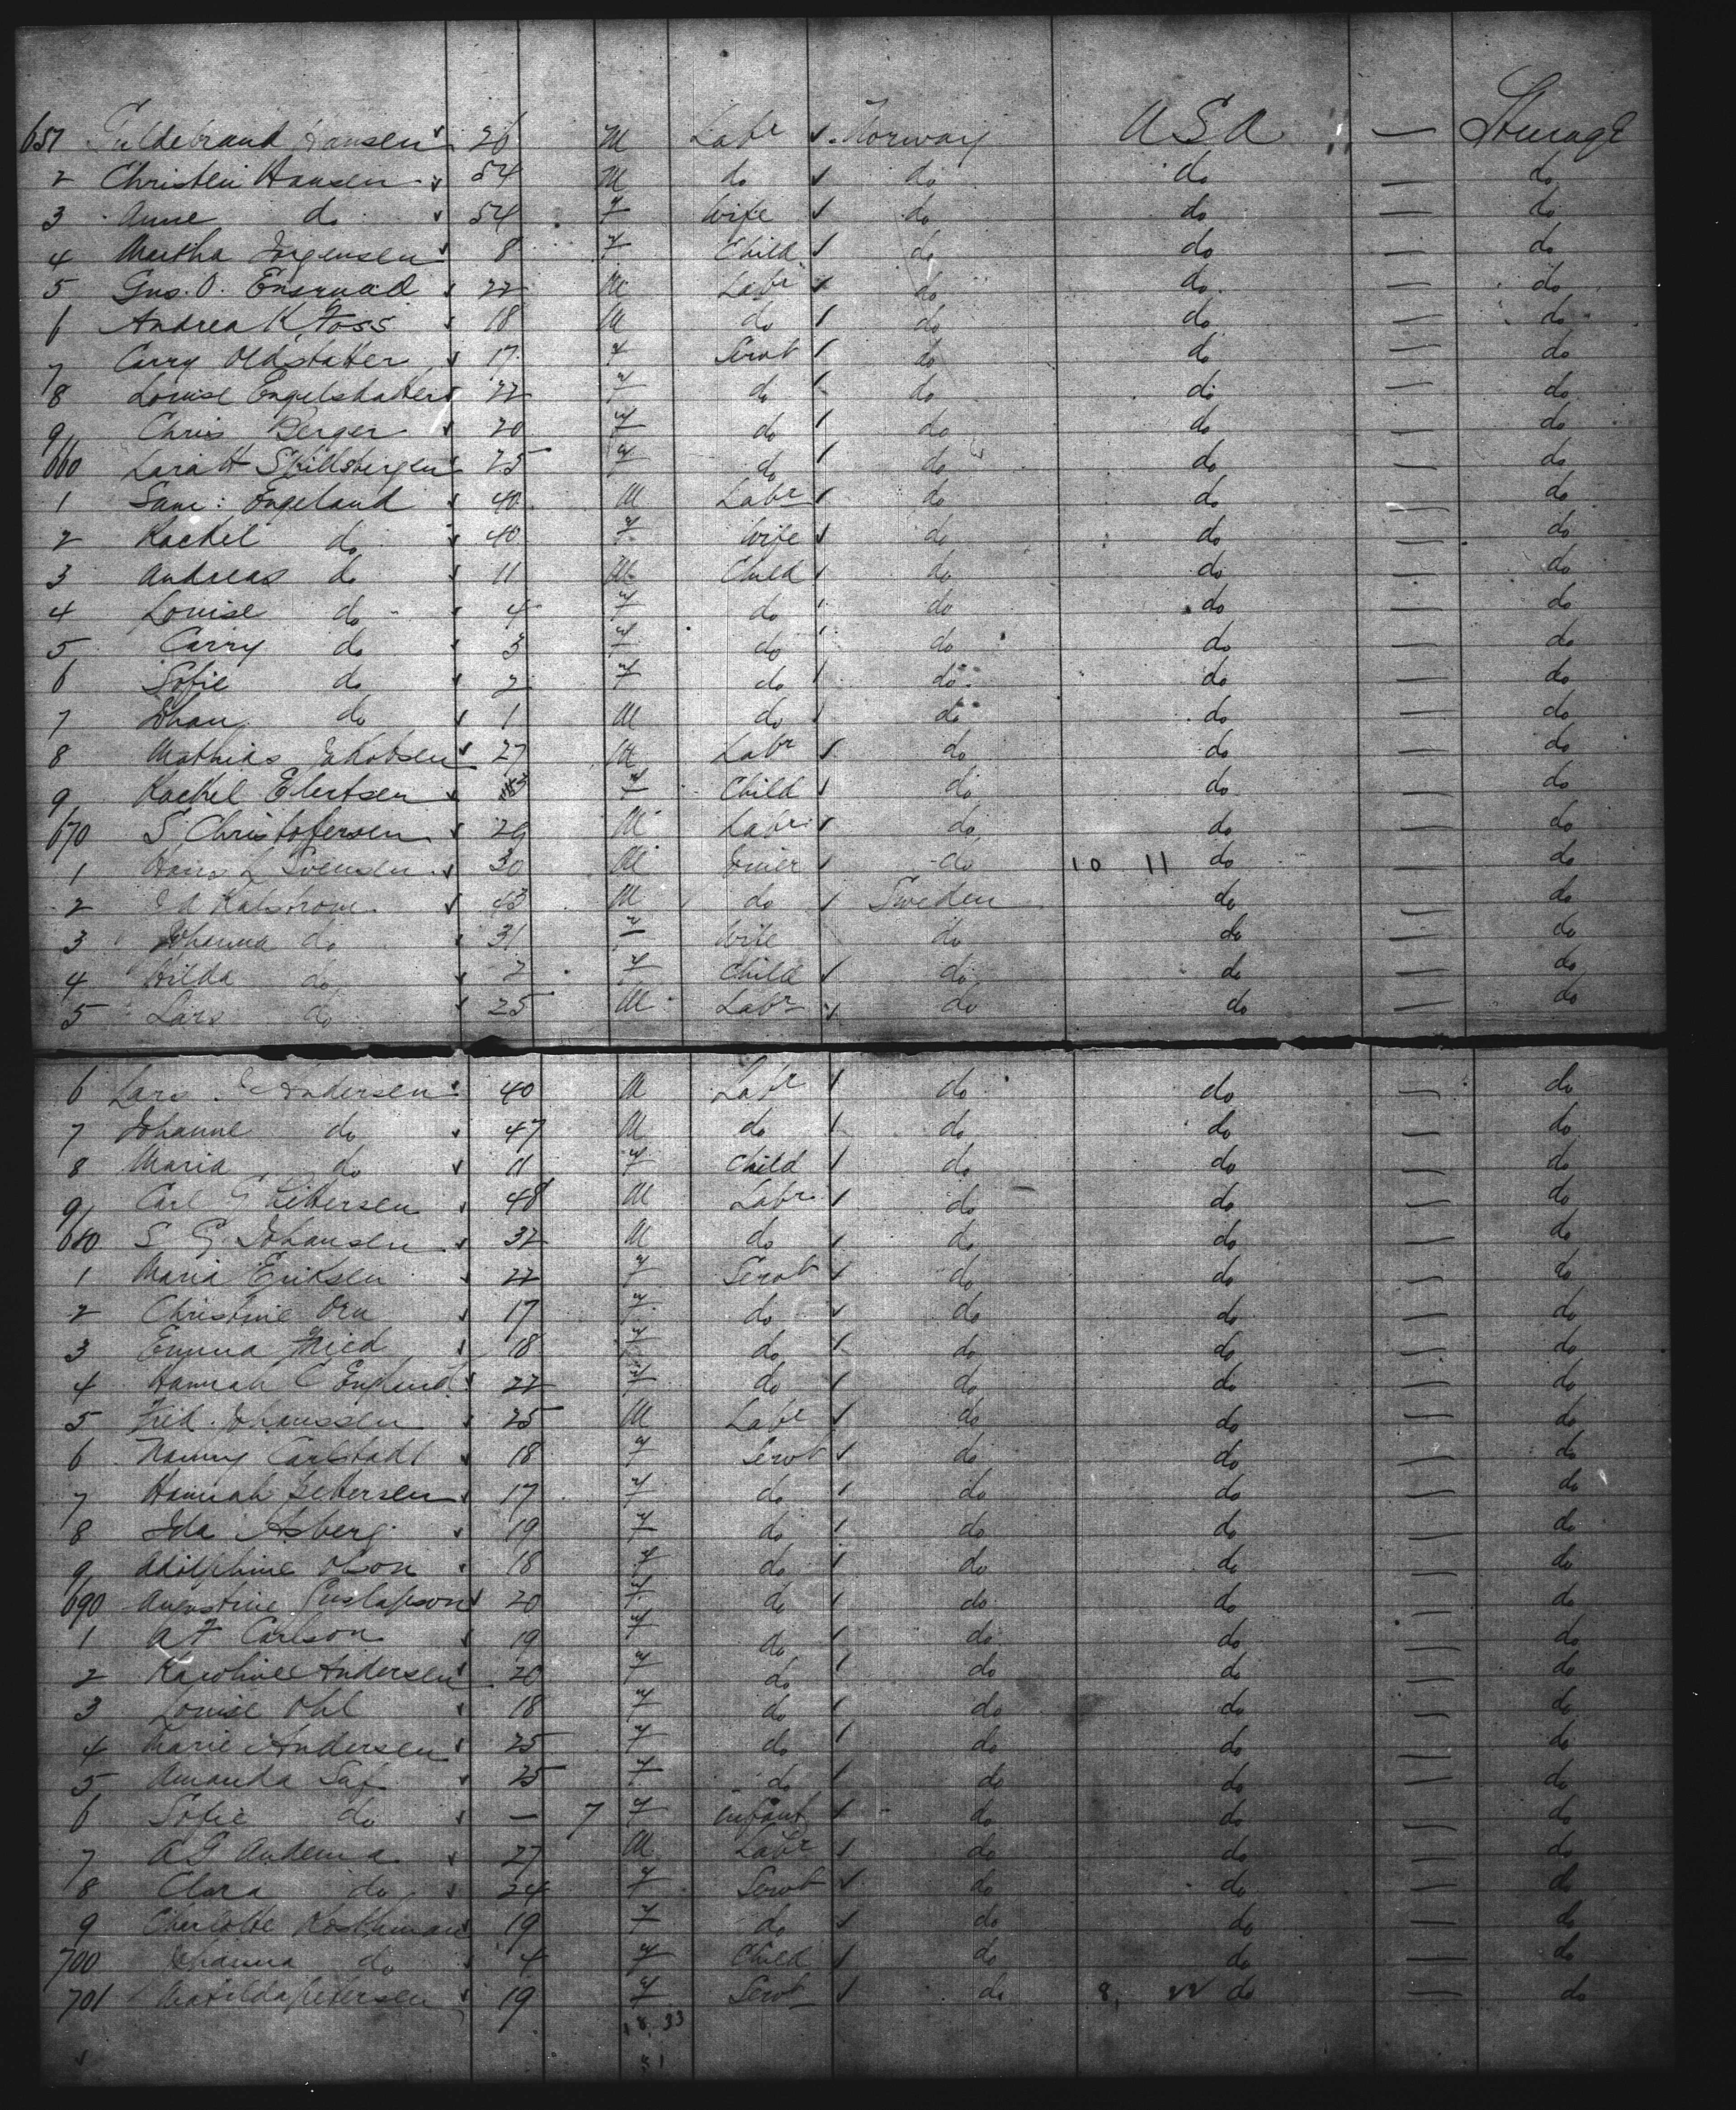 651 Guldebrand Hansen 26 M Labr Norway USA — Steerage
2 Christen Hansen 54 M do do do — do
3 Anne do 54 F Wife do do — do
4 Martha Jorgensen 8 F Child do do — do
5 Gus. O. Ensrud 22 M Labr do do — do
6 Andrea K Foss 18 M do do do — do
7 Carry Oldstatter 17 F Servt do do — do
8 Louise Engelstatter 22 F do do do — do
9 Chris Berger 20 F do do do — do
660 Lara H Skillsbergen 25 F do do do — do
1 Sam: Engeland 40 M Labr do do — do
2 Rachel do 40 F Wife do do — do
3 Andreas do 11 M Child do do — do
4 Louise do 4 F do do do — do
5 Carry do 3 F do do do — do
6 Sofie do 2 F do do do — do
7 Johan do 1 M do do do — do
8 Mathias Jakobsen 27 M Labr do do — do
9 Rachel Elertsen F Child do do — do
670 S Christofersen 29 M Labr do do — do
1 Hans L Svensen 30 M do 10 11 do — do
2 J A Kalstrom 43 M do Sweden do — do
3 Johanna do 31 F Wife do do — do
4 Hilda do 2 F Child do do — do
5 Lars do 25 M Labr do do — do
6 Lars Andersen 40 M Labr do do — do
7 Johanne do 47 M do do do — do
8 Maria do 11 F Child do do — do
9 Carl G Pettersen 48 M Labr do do — do
680 S G Johansen 32 M do do do — do
1 Maria Eriksen 22 F Servt do do — do
2 Christine 17 F do do do — do
3 Emma Fried 18 F do do do — do
4 Hannah C Englund 22 F do do do — do
5 Fred. Johanssen 25 M Labr do do — do
6 Nanny Carlstadt 18 F Servt do do — do
7 Hannah Pettersen 17 F do do do — do
8 Ida Asberg 19 F do do do — do
9 Adolphine Olson 18 F do do do — do
690 Augustine Gustafson 20 F do do do — do
1 A F Carlson 19 F do do do — do
2 Karoline Andersen 20 F do do do — do
3 Louise Ohl 18 F do do do — do
4 Marie Andersen 25 F do do do — do
5 Amanda 25 F do do do — do
6 Sofie do — 7 F infant do do — do
7 A G 27 M Labr do do — do
8 Clara do 24 F Servt do do — do
9 Charlotte 19 F do do do — do
700 Johanna do 4 F Child do do — do
701 Matilda Petersen 19 F Servt do 8, do — do
18, 33